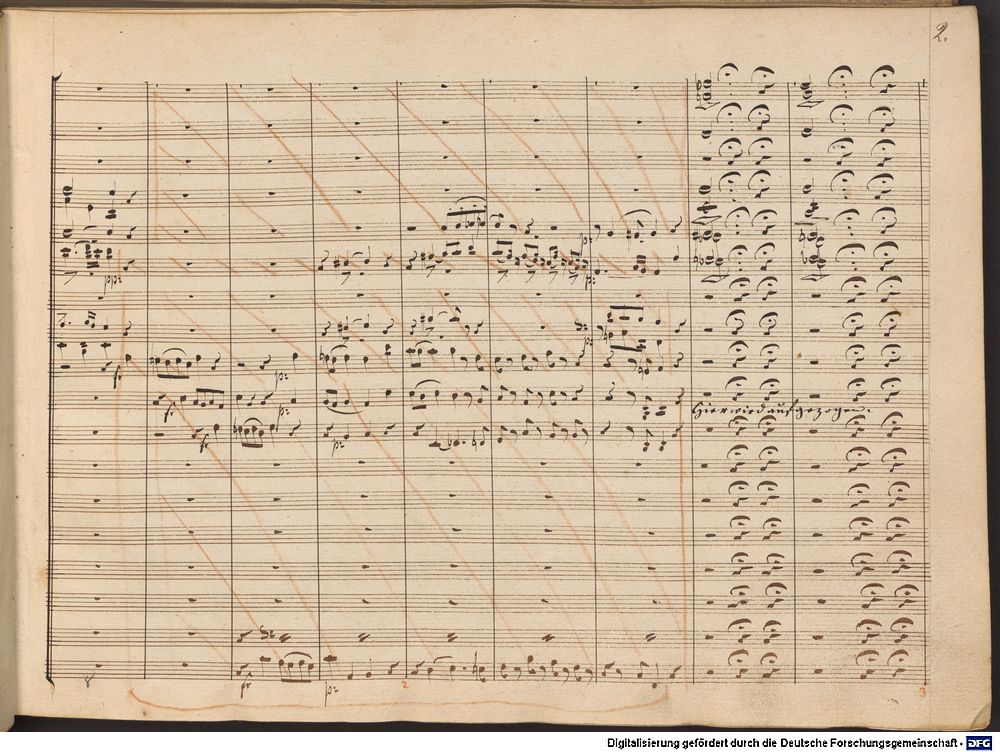 2.
p:
p:
p:
fr
p:
fr
p:
Hier wird aufgezogen.
fr
p:
fr
p:
2
3
Digitalisierung gefördert durch die Deutsche Forschungsgemeinschaft - DFG